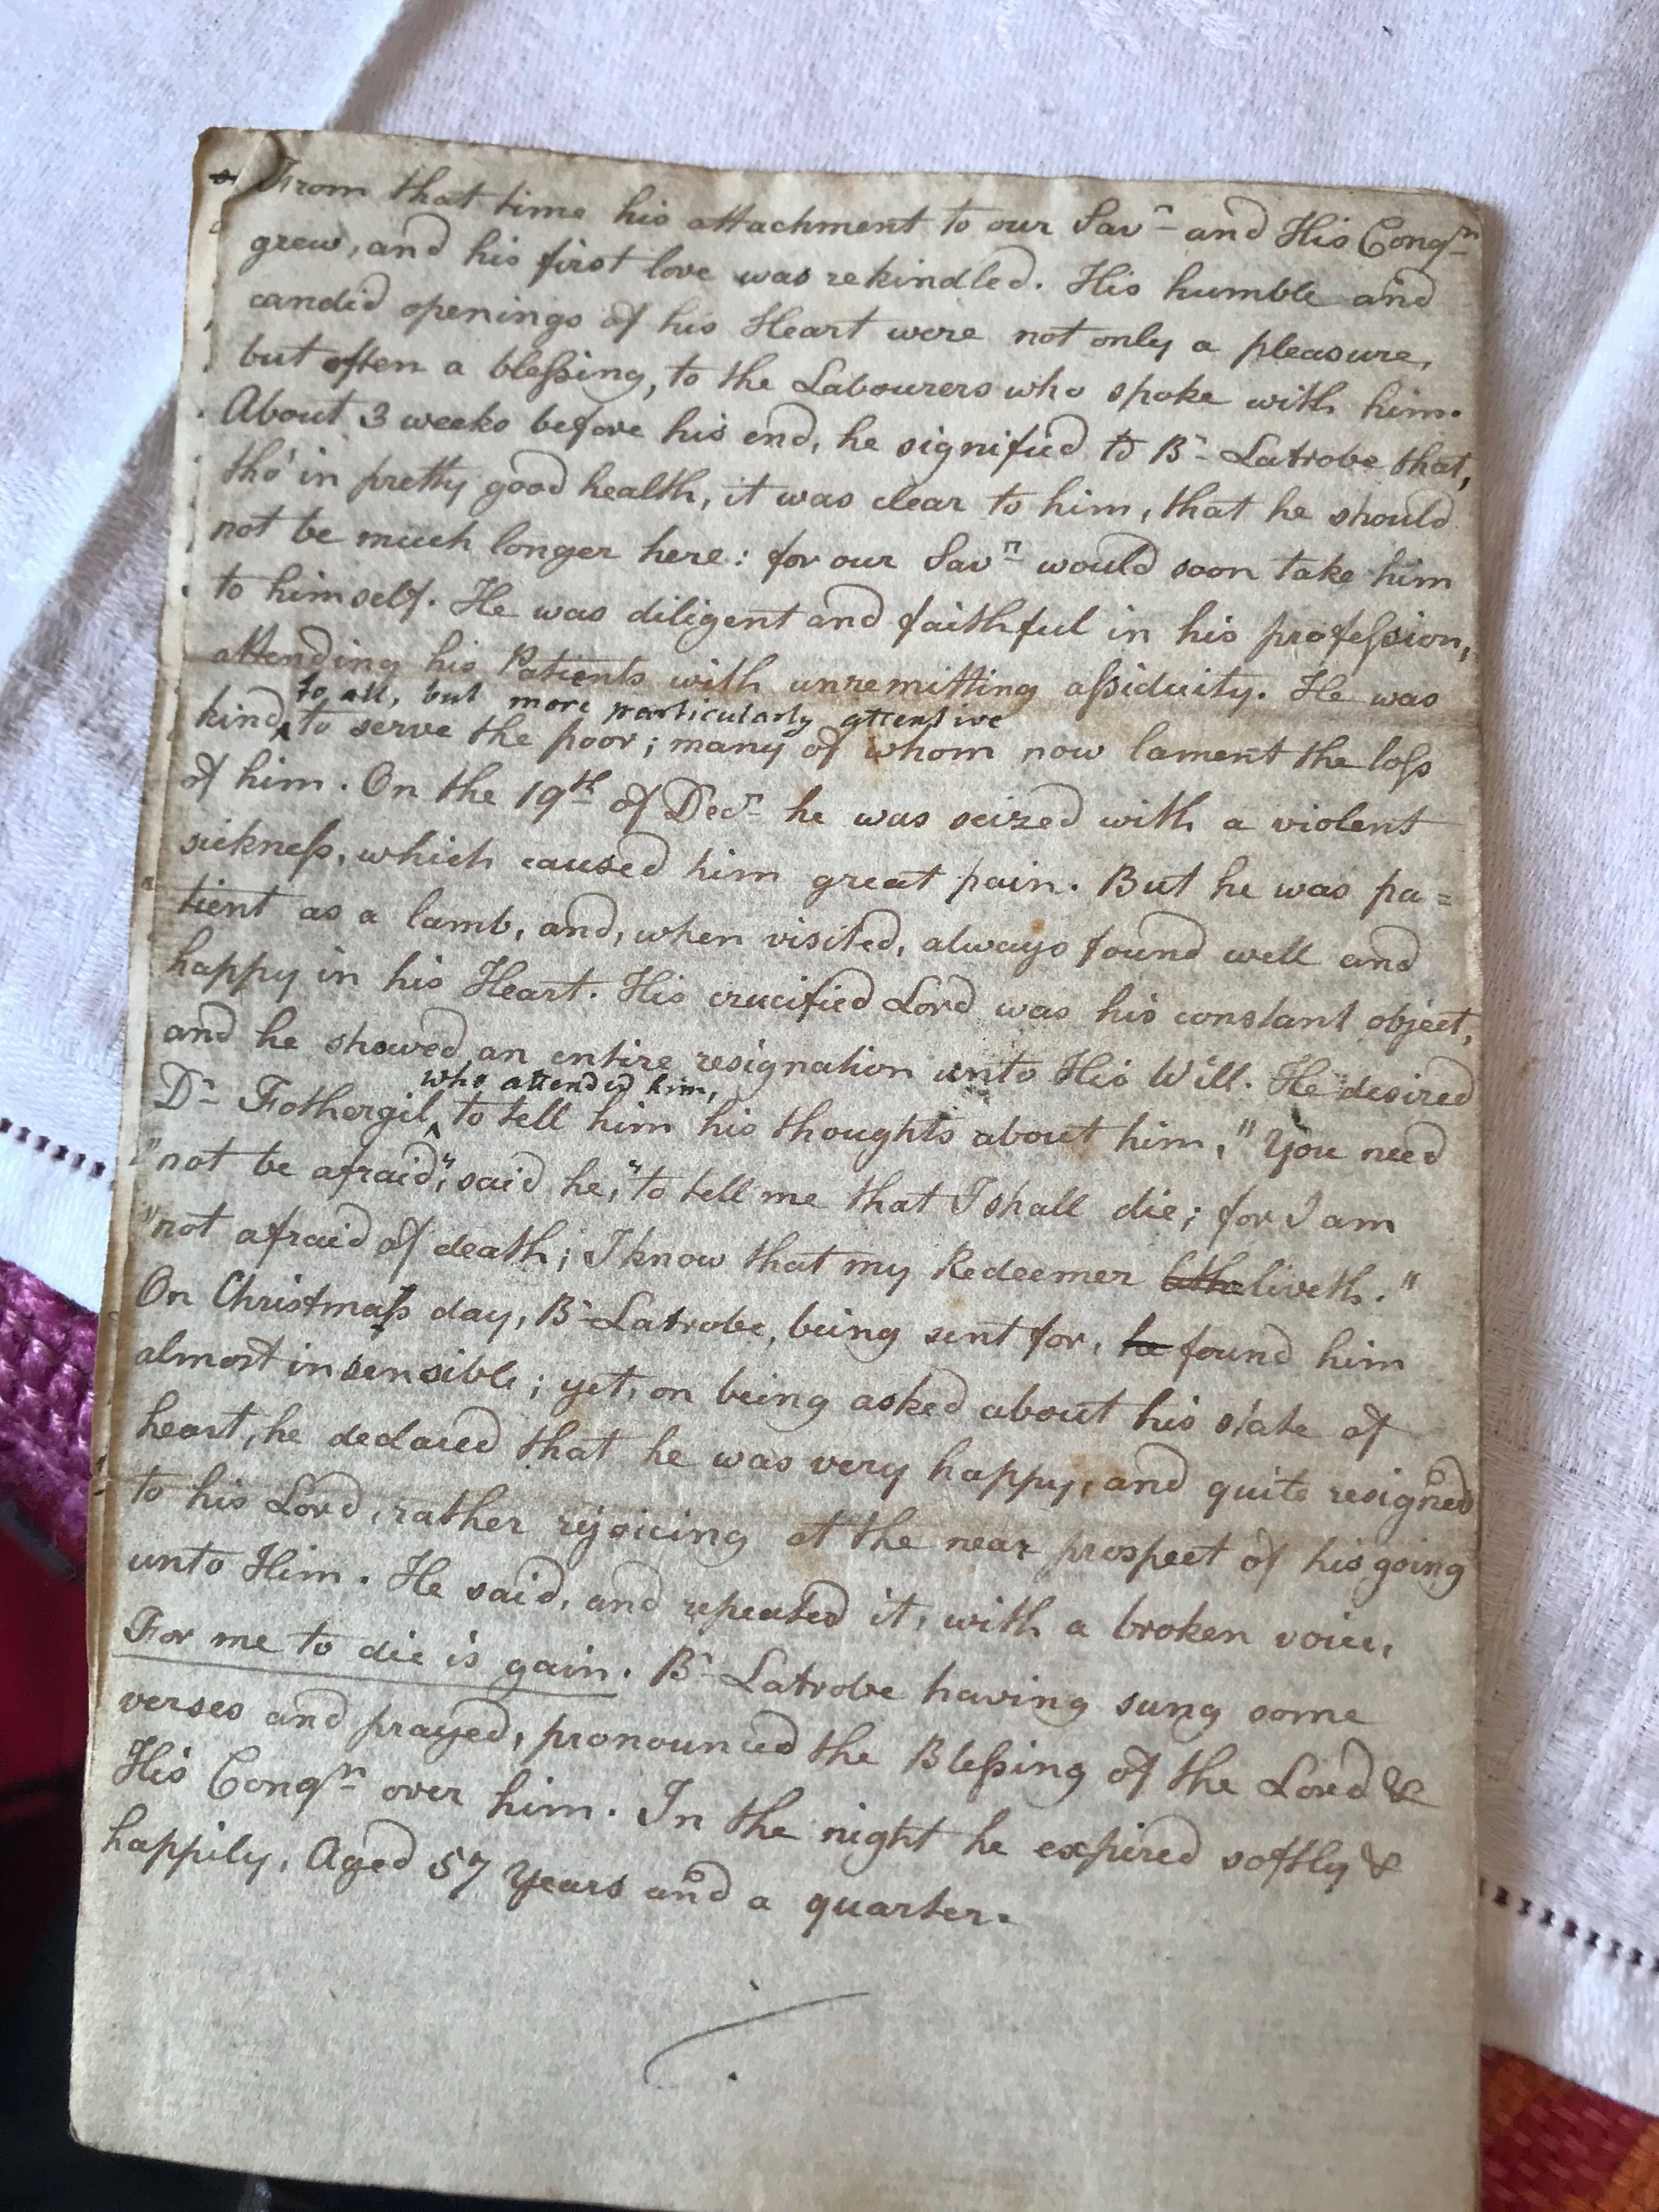 From that time his attachment to our Savr and His Congn
grew, and his first love was rekindled. His humble and
candid openings of his Heart were not only a pleasure,
but often a bleſsing, to the Labourers who spoke with him.
About 3 weeks before his end, he signified to Br Latrobe that,
tho' in pretty good health, it was clear to him, that he should
not be much longer here: for our Savr would soon take him
to himself. He was diligent and faithful in his profeſsion,
attending his Patients with unremitting aſsiduity. He was
to all, but more particularly attentive
kind, to serve the poor; many of whom now lament the loſs
of him. On the 19th of Decr he was seized with a violent
sickneſs, which caused him great pain. But he was pa=
tient as a lamb, and, when visited, always found well and
happy in his Heart. His crucified Lord was his constant object,
and he showed an entire resignation unto His Will. He desired
who attended him,
Dr Fothergil, to tell him his thoughts about him, "You need
"not be afraid," said he, "to tell me that I shall die; for I am
"not afraid of death; I know that my Redeemer liveth."
On Christmaſs day, Br Latrobe, being sent for, he found him
almost insensible; yet, on being asked about his state of
heart, he declared that he was very happy, and quite resigned
to his Lord, rather rejoicing at the near prospect of his going
unto Him. He said, and repeated it, with a broken voice,
For me to die is gain. Br Latrobe having sung some
verses and prayed, pronounced the Bleſsing of the Lord &
His Congn over him. In the night he expired softly &
happily, Aged 57 Years and a quarter.